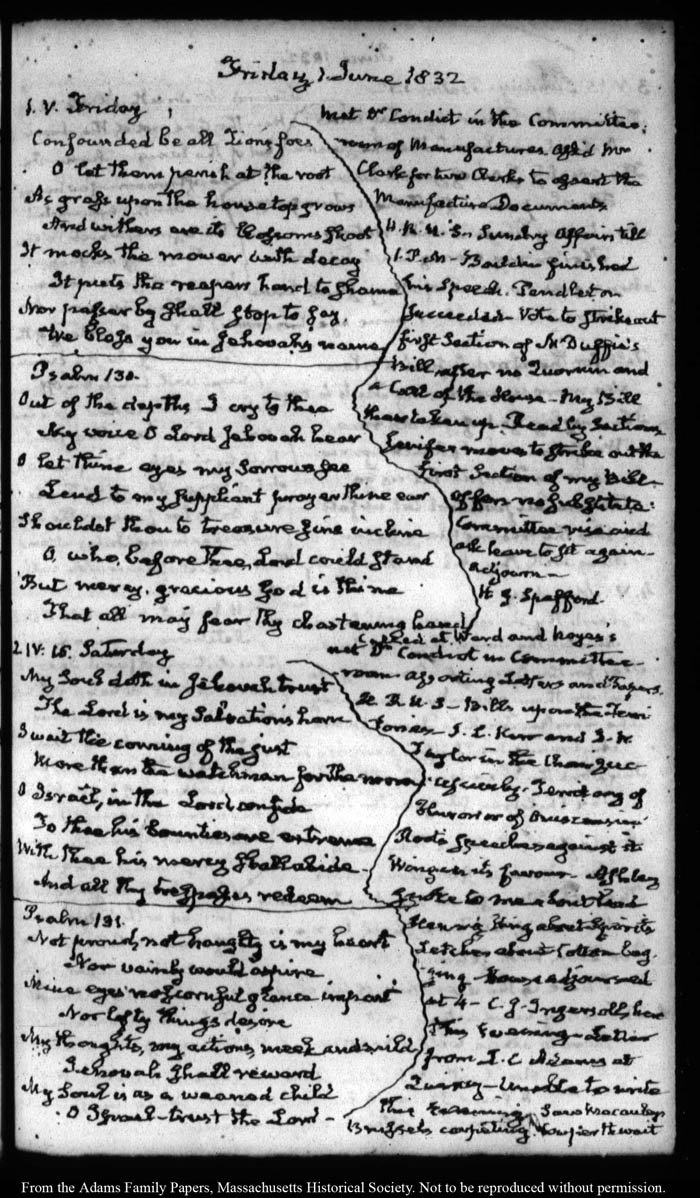 Friday 1 June 1832
1. V. Friday
Confounded be all Zion's foes
O let them perish at the root
As grass upon the housetop grows
And withers ere its blossoms shoot
It mocks the mower with decay
It puts the reapers hand to shame
Nor passer by shall stop to say,
We bless you in Jehovah's name
Psalm 130.
Out of the depths I cry to thee
My voice O Lord Jehovah hear
O let thine eyes my sorrows see
Lend to my suppliant prayer thine ear
Shouldst thou to treasure sins incline
O, who, before thee, Lord could stand
But mercy, gracious God is thine
That all may fear thy chastening hand
met Dr Condict in the Committee
room of Manufactures. Ask'd Mr
Clark for two Clerks to assort the
Manufacture Documents
H. R. U.S. Sundry Affairs till
1. P.M. Bouldin finished
his Speech. Pendleton
succeeded. Vote to strike out
first Section of McDuffie's
Bill, after no Quorum and
a Call of the House. My Bill
then taken up. Read by Sections
Jenifer moves to strike out the
first Section of my Bill
offers no substitute:
Committee rise and
ask leave to sit again
adjourn
H. G. Spafford
2. IV: 15. Saturday
My Soul doth in Jehovah trust
The Lord is my Salvation's
I wait the coming of the just
More than the watchman for the morn
O Israel, in the Lord confide
To thee his bounties are extreme
With thee his mercy shall abide
And all thy trespasses redeem
Psalm 131.
Not proud, not haughty is my heart
Nor vainly would aspire
Mine eyes no scornful glance impart
Nor lofty things desire
My thoughts, my actions, meek and mild
Jehovah shall reward
My Soul is as a weaned child
O Israel trust the Lord
Called at Ward and Noyes's
met Dr Condict in Committee
room assorting Letters and Papers.
H. R. U.S. Bills upon the Terri
tories. J. L. Kerr and J. W.
Taylor in the Chair
Territory of
Huron or of Ouisconsin
Root's speeches against it
Wing in its favour. Ashley
spoke to me about Lead
Henry King about Spirits
Letcher about Cotton bag
ging. House adjourned
at 4. C. J. Ingersoll, here
this Evening. Letter
from I. C. Adams at
Quincy. Unable to write
this Evening.
Brussels carpeting.
From the Adams Family Papers, Massachusetts Historical Society. Not to be reproduced without permission.